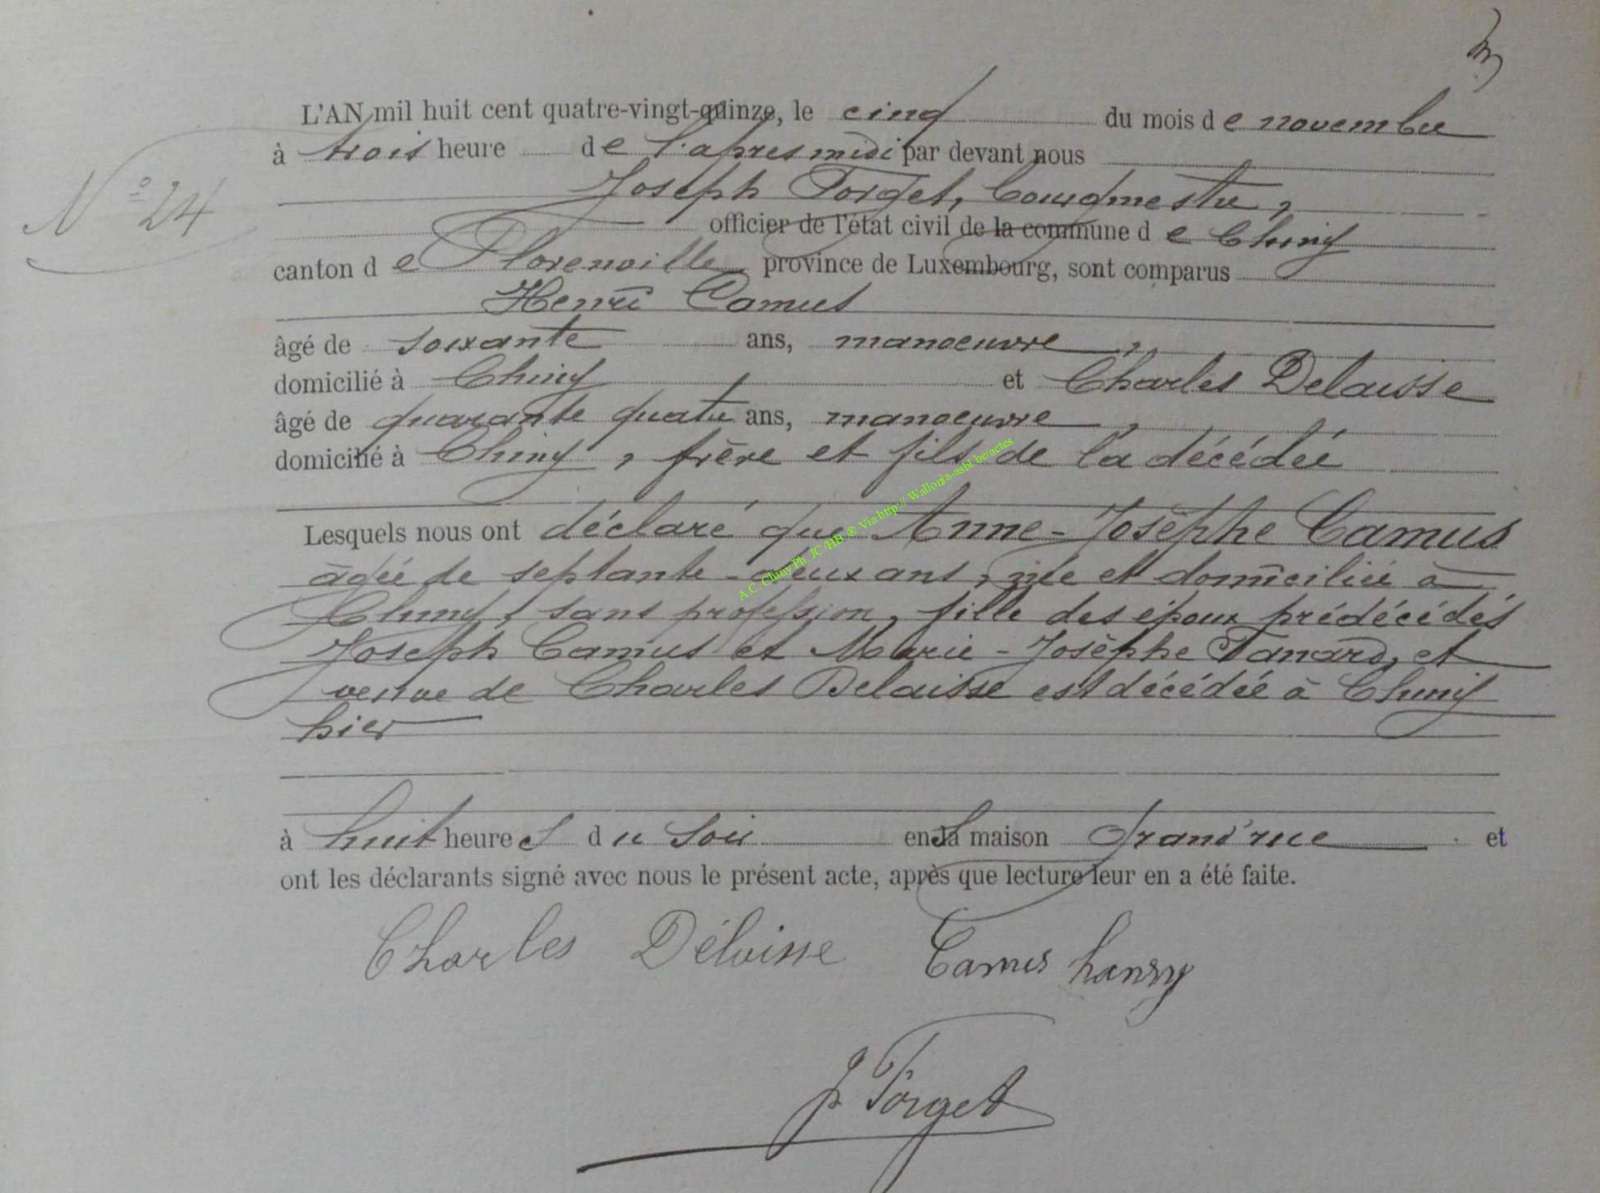 L'AN mil huit cent quatre-vingt-quinze, le cinq du mois de novembre
à trois heure de l'après midi par devant nous
N° 24
Joseph Forget, Bourgmestre,
officier de l'état civil de la commune de Chiny
canton de Florenville province de Luxembourg, sont comparus
Henri Camus
âgé de soixante ans, manoeuvre,
domicilié à Chiny et Charles Delaisse
âgé de quarante quatre ans, manoeuvre,
domicilié à Chiny, frère et fils de la décédée
Lesquels nous ont déclaré que Anne-Josèphe Camus
âgée de septante-deux ans, née et domiciliée à
Chiny, sans profession, fille des époux prédécédés
Joseph Camus et Marie-Josèphe Fanard, et
veuve de Charles Delaisse est décédée à Chiny
hier
à huit heures du soir en sa maison Grand'rue et
ont les déclarants signé avec nous le présent acte, après que lecture leur en a été faite.
Charles Délaisse Camus hanry
J Forget
A.C. Chiny Ph JC/HB @ Via http:// Wallonia-asbl.be/actes